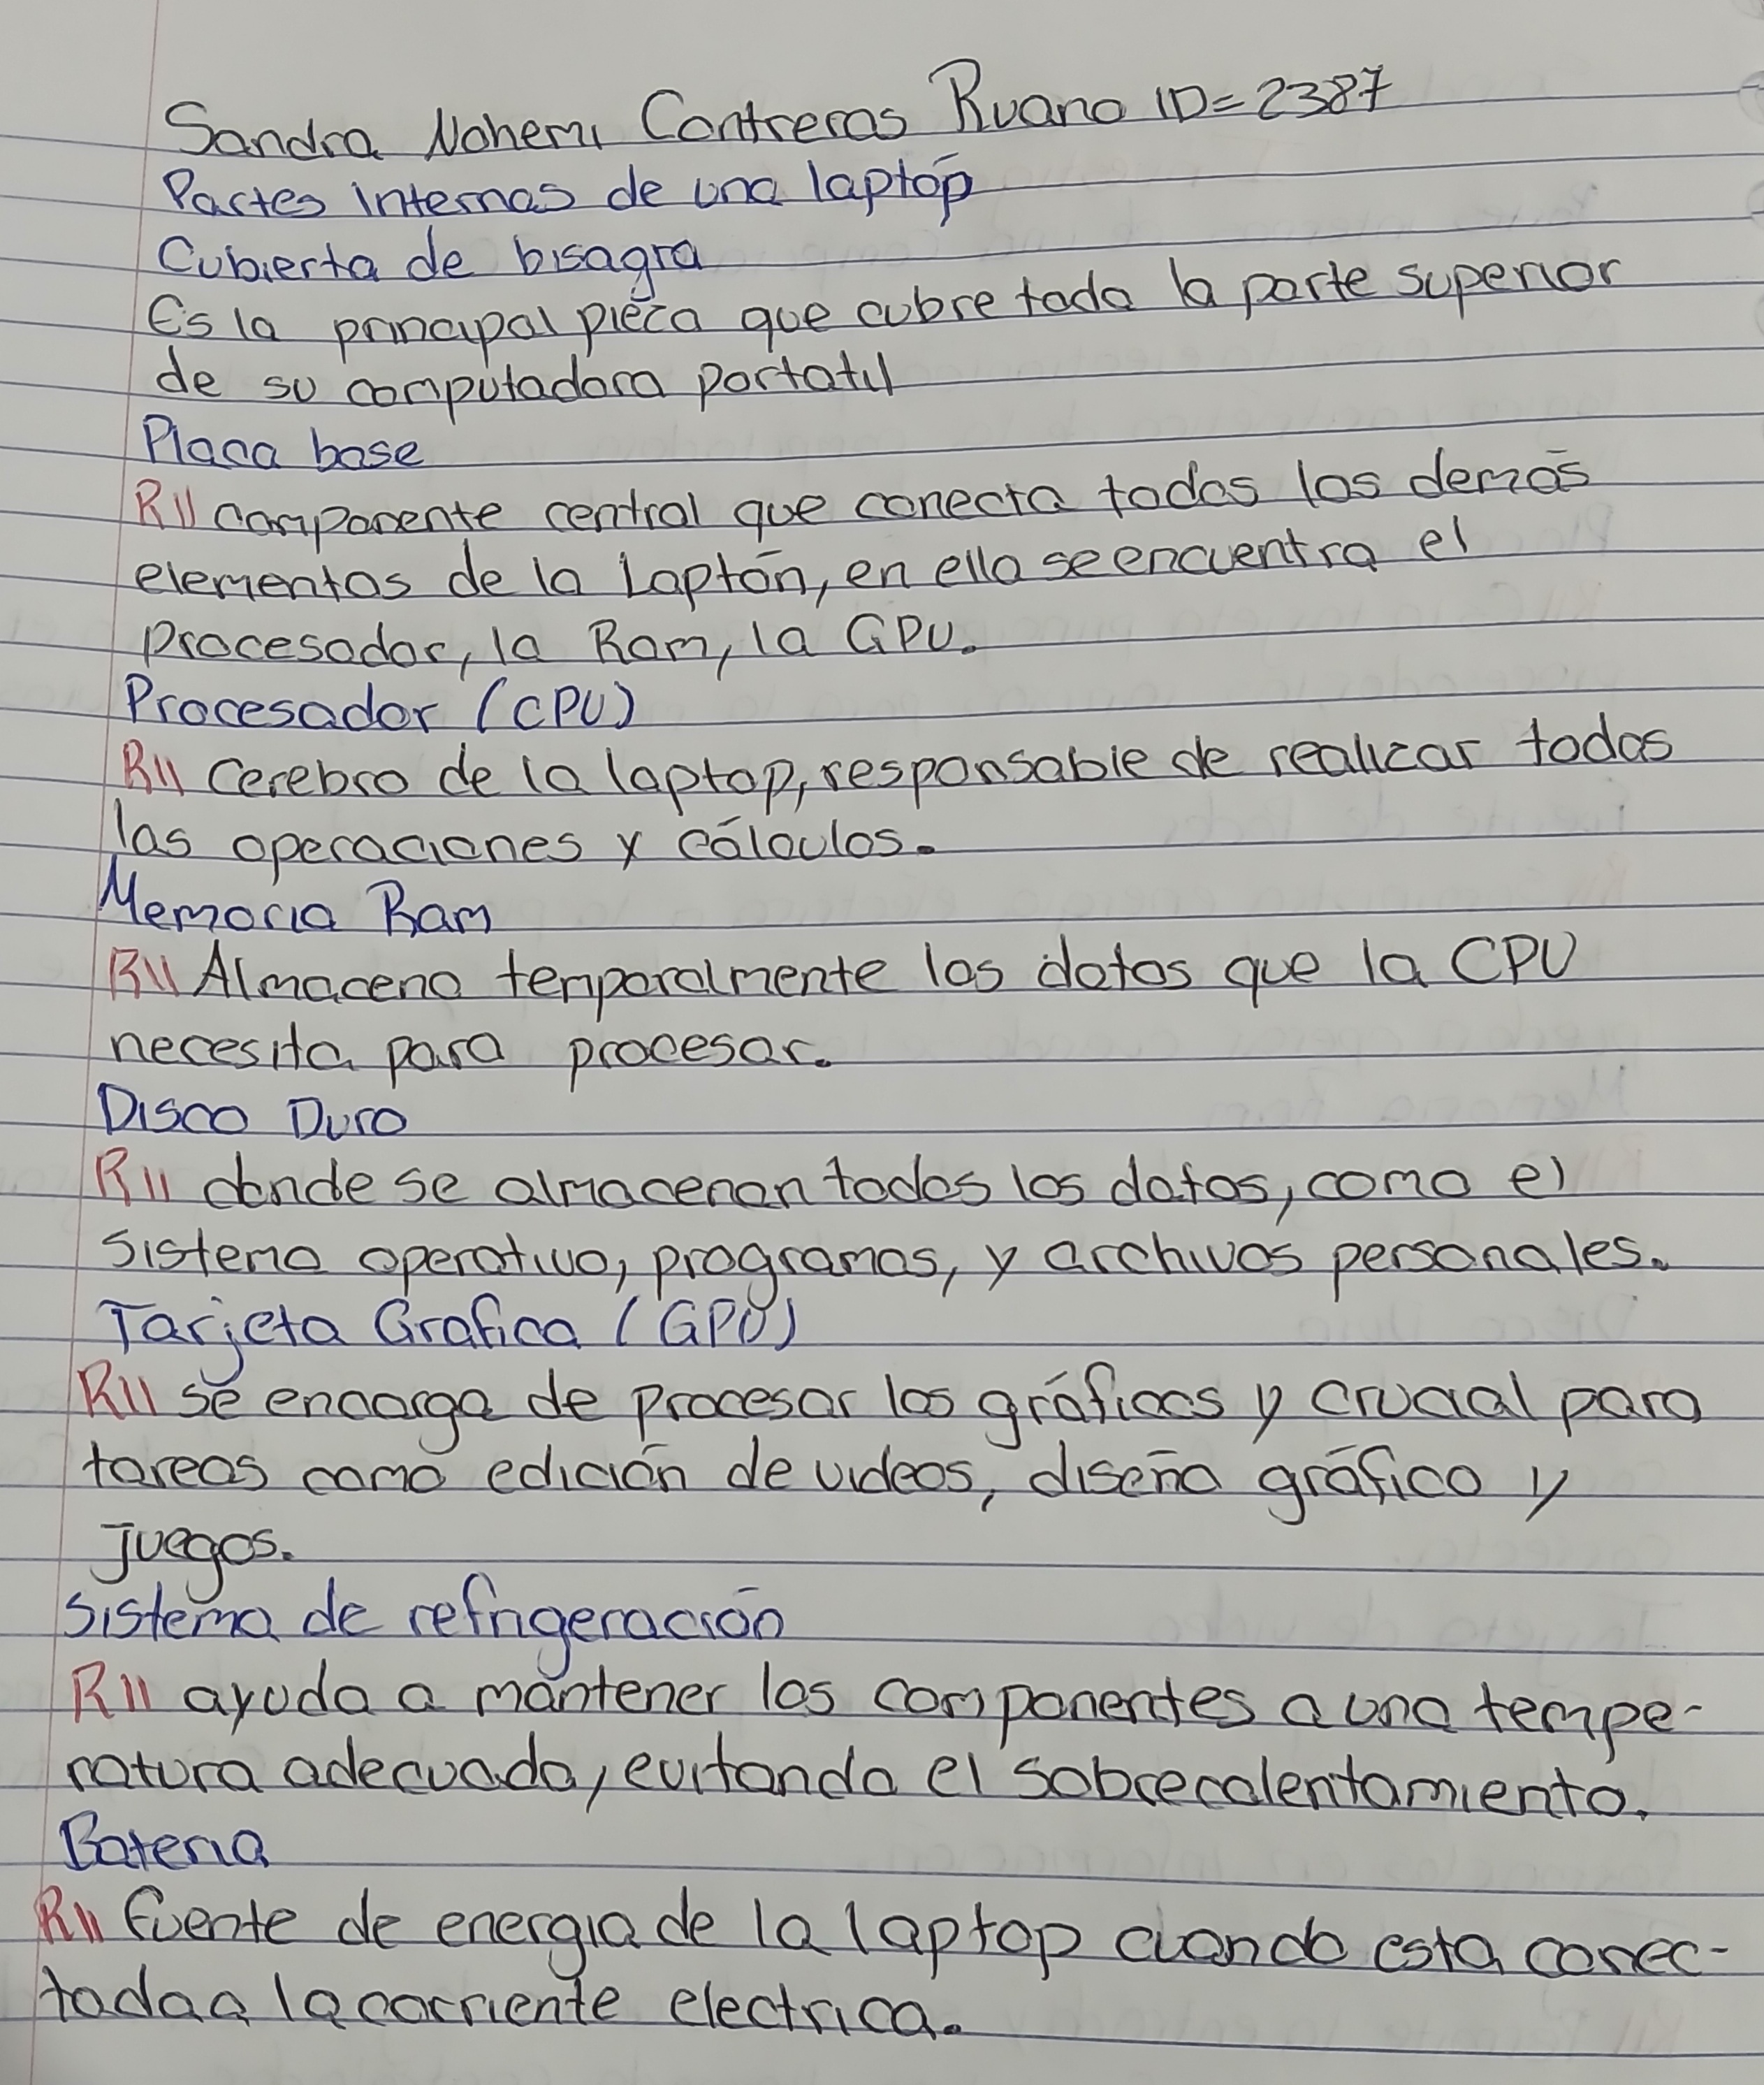 Sandra Nohemi Contreras Ruano ID=2387
Partes internas de una laptop
Cubierta de bisagra
Es la principal pieza que cubre toda la parte superior
de su computadora portatil
Placa base
R// componente central que conecta todos los demás
elementos de la Laptón, en ella se encuentra el
procesador, la Ram, la GPU.
Procesador (CPU)
R// Cerebro de la laptop, responsable de realizar todas
las operaciones y cálculos.
Memoria Ram
R// Almacena temporalmente los datos que la CPU
necesita para procesar.
Disco Duro
R// donde se almacenan todos los datos, como el
sistema operativo, programas, y archivos personales.
Tarjeta Grafica (GPU)
R// se encarga de procesar los gráficos y crucial para
tareas como edición de videos, diseño gráfico y
juegos.
Sistema de refrigeración
R// ayuda a mantener los componentes a una tempe-
ratura adecuada, evitando el sobrecalentamiento.
Bateria
R// fuente de energia de la laptop cuando esta conec-
tada a la corriente electrica.